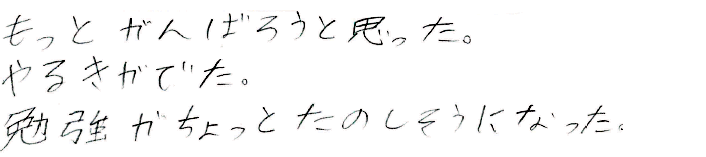 もっとがんばろうと思った。
やるきがでた。
勉強がちょっとたのしそうになった。